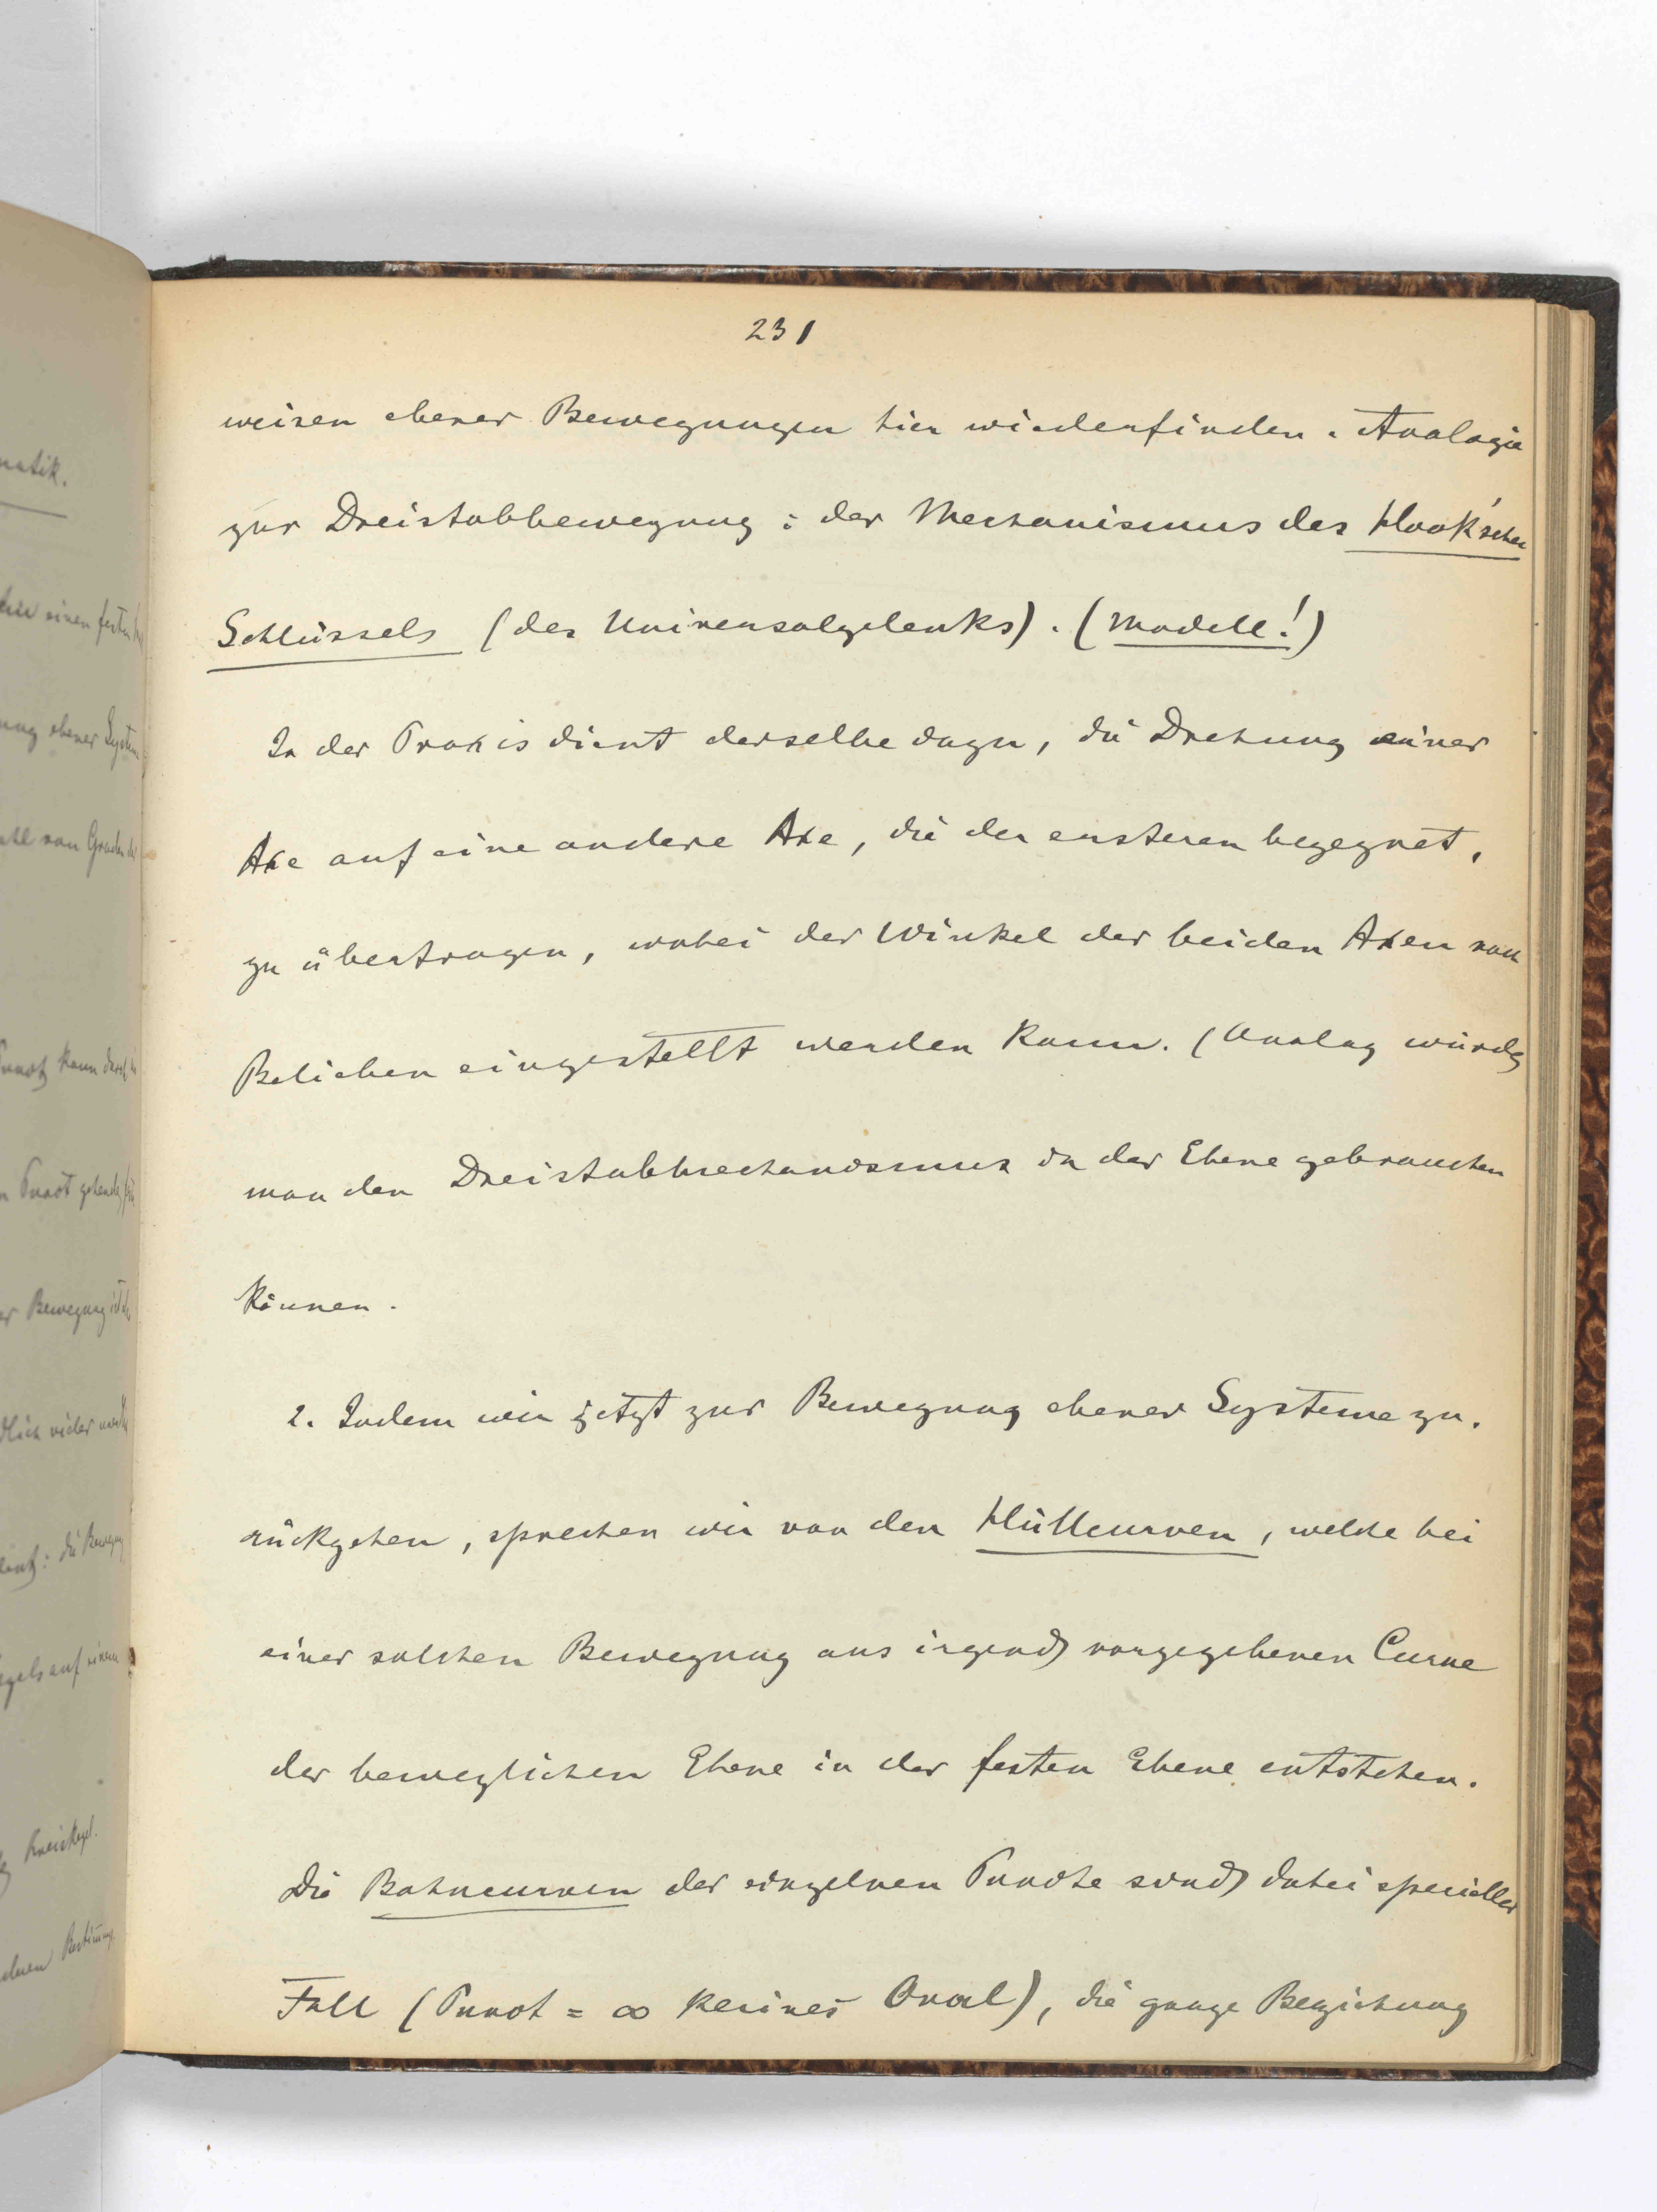 231
weisen ebener Bewegungen hier wiederfinden. Analogie
zur Dreistabbewegung: der Mechanismus des Hook'schen
Schlüssels (des Universalgelenks). (Modell!)
In der Praxis dient derselbe dazu, die Drehung einer
Axe auf eine andere Axe, die der ersteren begegnet,
zu übertragen, wobei der Winkel der beiden Axen nach
Belieben eingestellt werden kann. (Analog würde
man den Dreistabmechanismus in der Ebene gebrauchen
können.
2. Indem wir jetzt zur Bewegung ebener Systeme zu-
rückgehen, sprechen wir von den Hüllcurven, welche bei
einer solchen Bewegung aus irgend vorgegebenen Curve
der beweglichen Ebene in der festen Ebene entstehen.
Die Bahncurven der einzelnen Puncte sind dabei specieller
Fall (Punct = ∞ kleines Oval), die ganze Beziehung
natik.
einen festen
ung ebener System
von Graden
Punct kann durch
Punct gehende
Bewegung ist
auf einen
Kreiskegel.